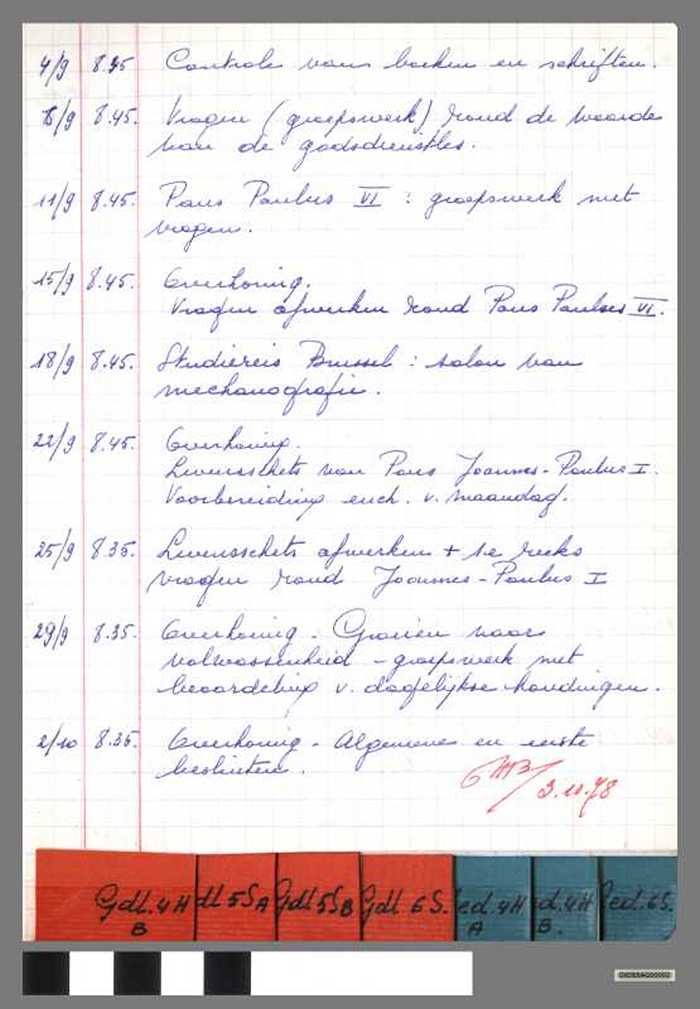 4/9 8.45 Controle van boeken en schriften.
8/9 8.45. Vragen (groepswerk) rond de waarde
van de godsdienstles.
11/9 8.45. Paus Paulus VI : groepswerk met
vragen.
15/9 8.45. Overhoring.
Vragen afwerken rond Paus Paulus VI.
18/9 8.45. Studiereis Brussel : salon van
mechanografie.
22/9 8.45. Overhoring.
Levensschets van Paus Joannes-Paulus I.
Voorbereiding euch. v. maandag.
25/9 8.35. Levensschets afwerken + 1e reeks
vragen rond Joannes-Paulus I
29/9 8.35. Overhoring - Groeien naar
volwassenheid - groepswerk met
beoordeling v. dagelijkse houdingen.
2/10 8.35. Overhoring - Algemene en eerste
besluiten.
3.10.78
Gdl.4H
B
dl 5S A
Gdl 5S B
Gdl 6S.
ed.4H
A
ed.4H
B.
ed.6S.